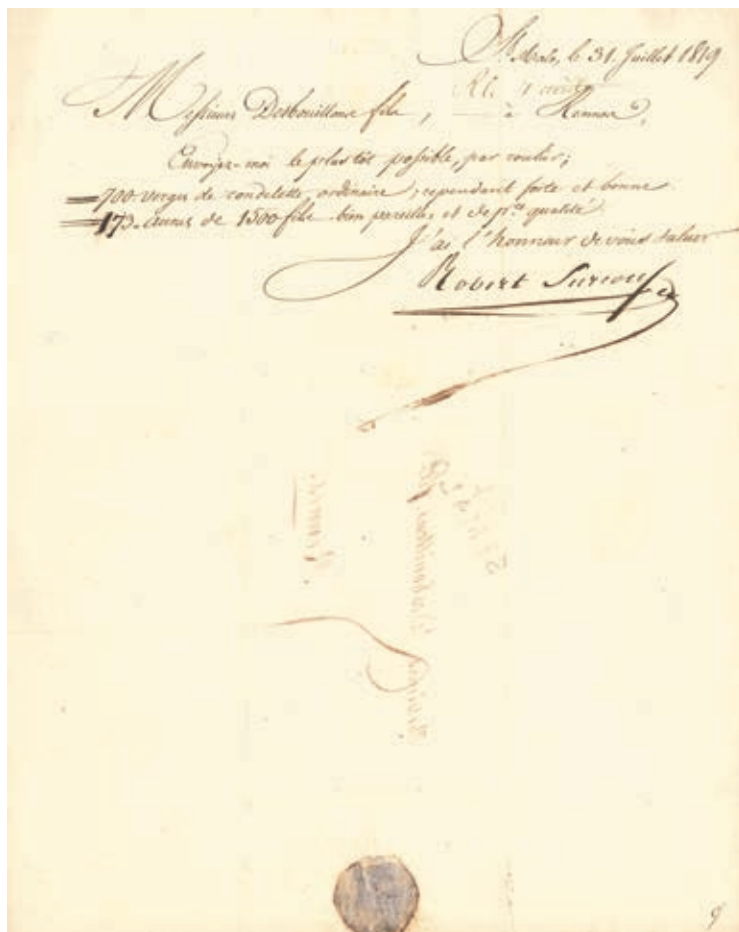 St. Malo, le 31. Juillet 1819
Messieurs Desbouillons fils, à Rennes,
Envoyez-moi le plus tôt possible, par roulier;
700 verges de rondelette, ordinaire, cependant forte et bonne
173. aunes de 1500 fils bien pareilles, et de p.re qualité
J'ai l'honneur de vous saluer
Robert Surcouf